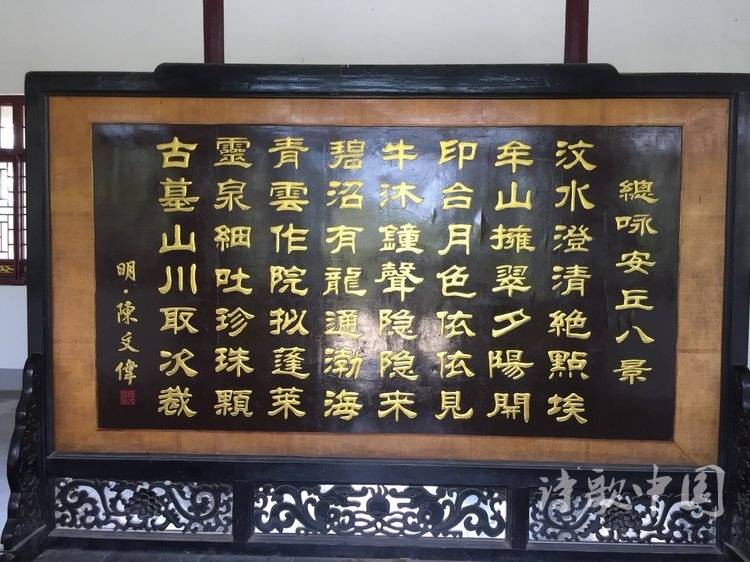 總咏安丘八景
汶水澄清絶點埃
牟山擁翠夕陽開
印台月色依依見
牛沐鐘聲隐隐来
碧沼有龍通渤海
青雲作院拟蓬莱
靈泉細吐珍珠顆
古墓山川取次裁
明·陳文偉
诗歌中国